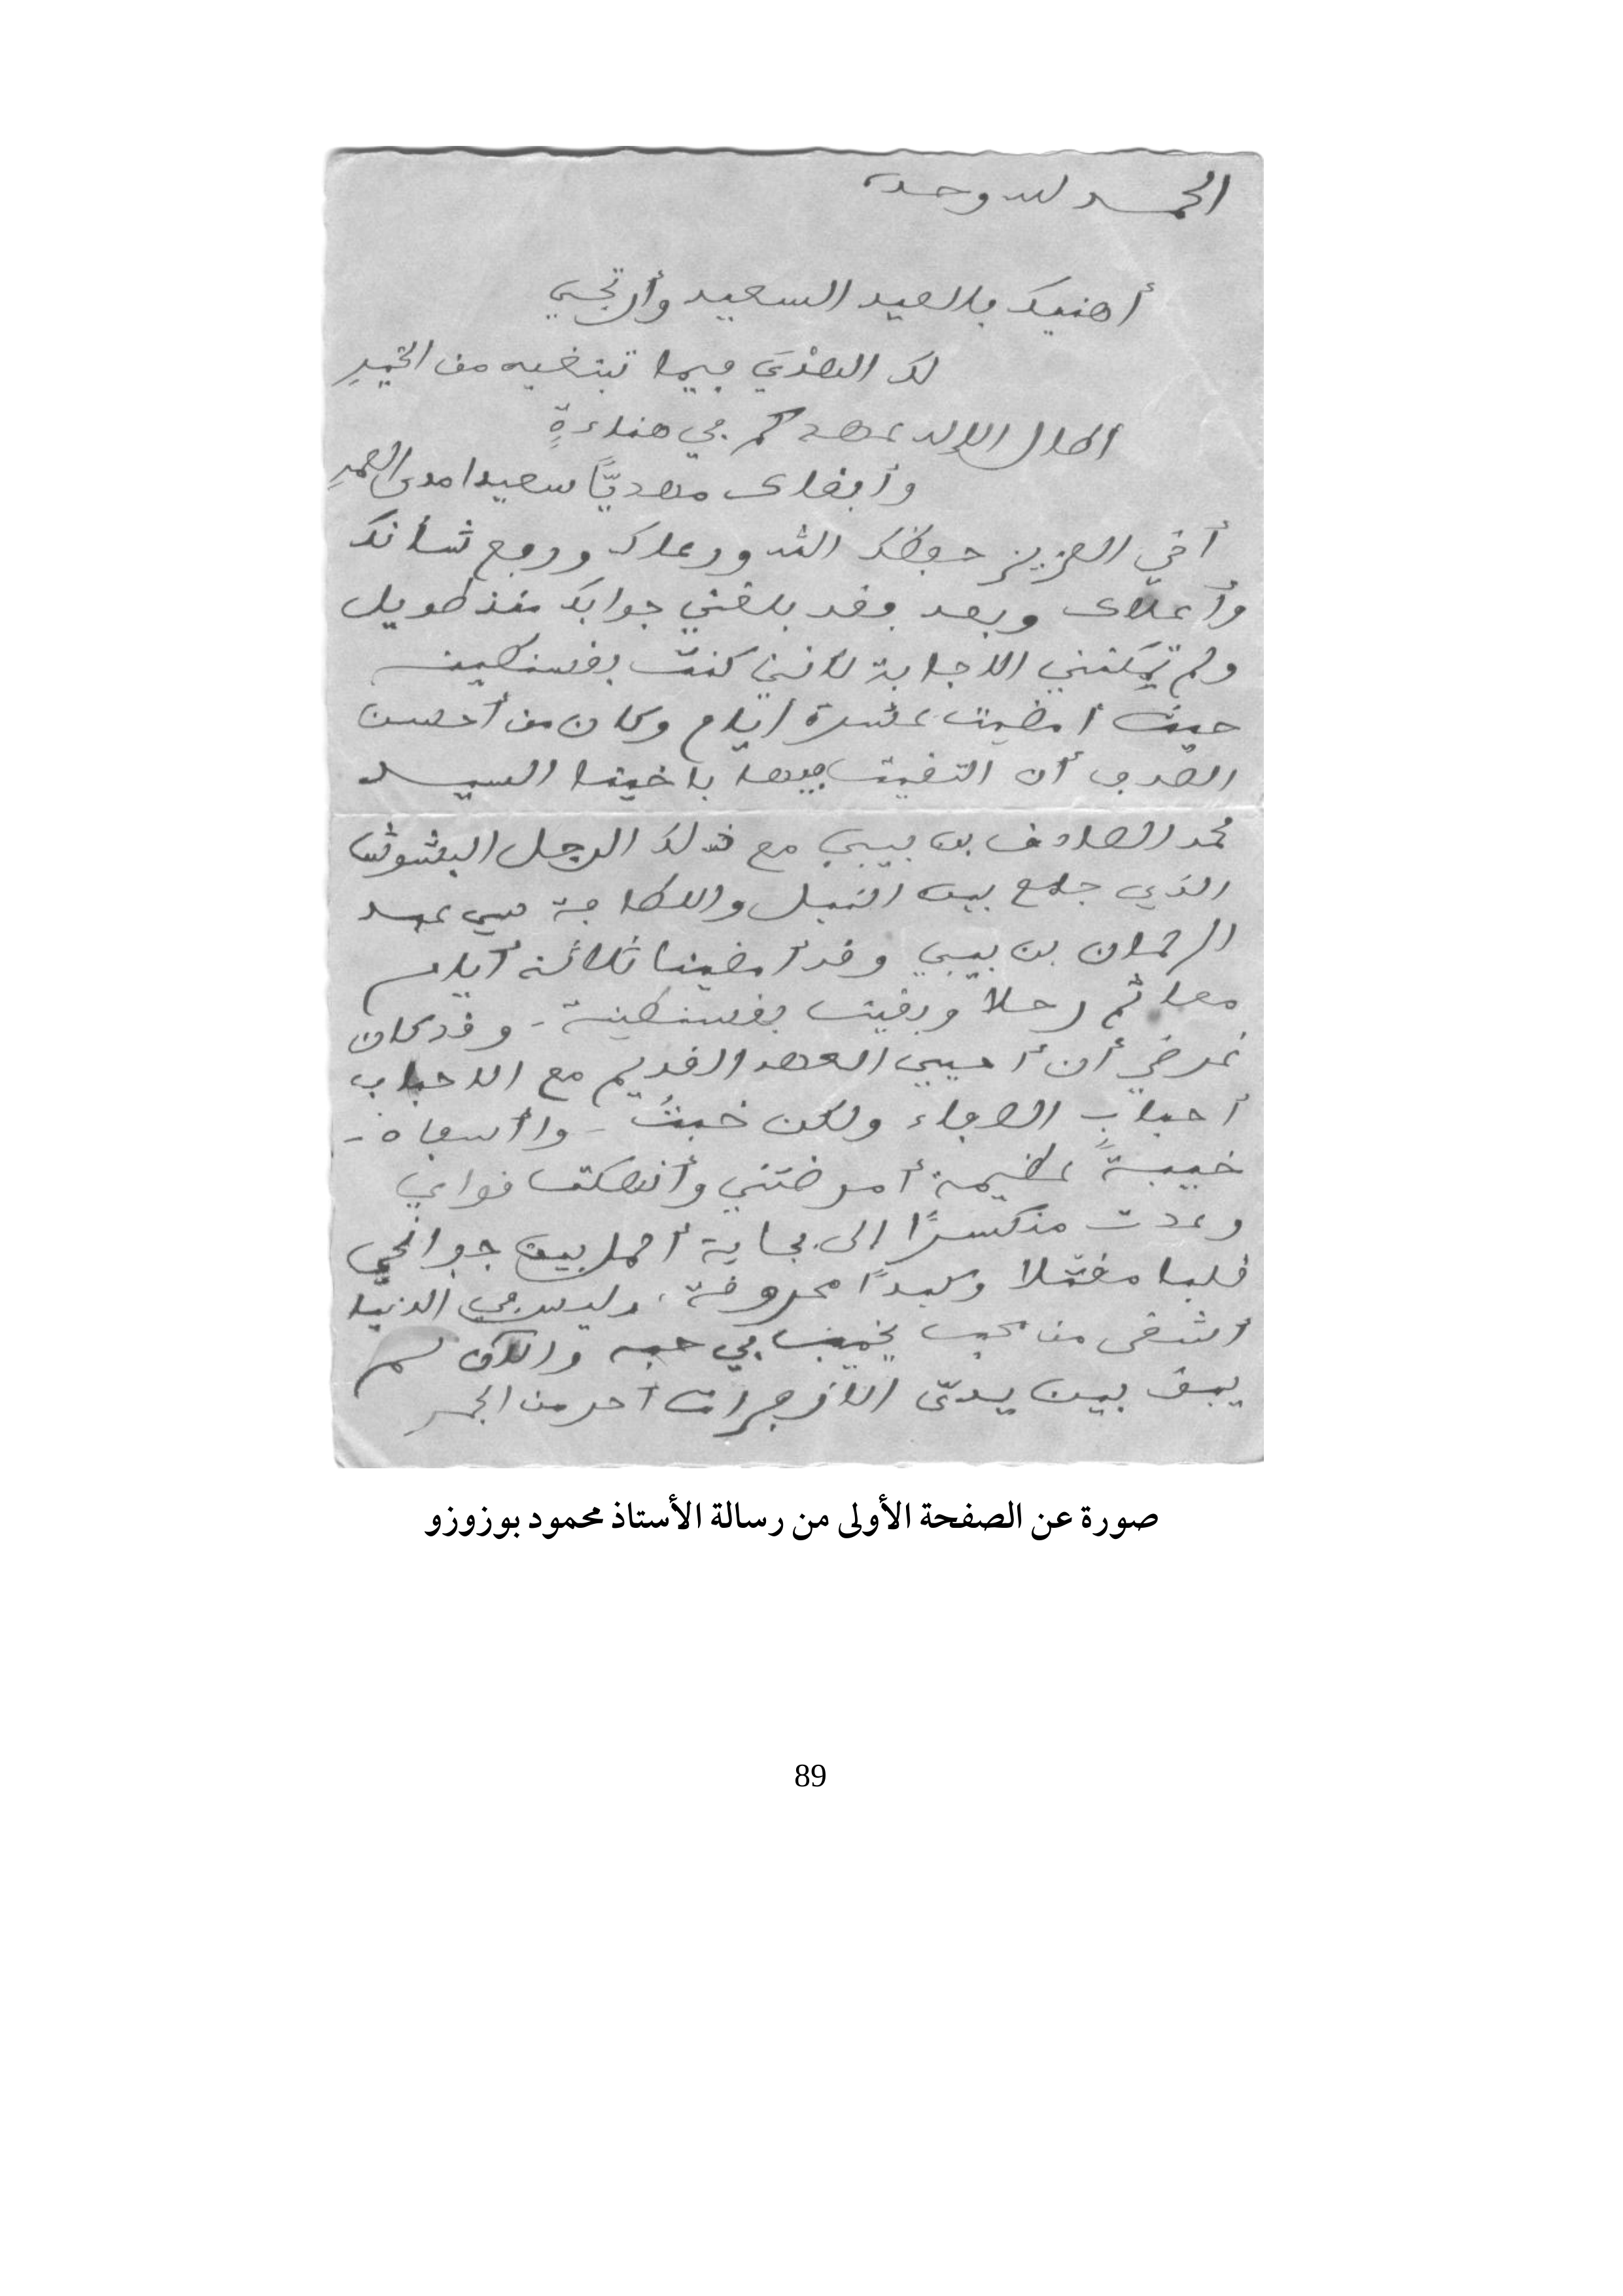 الحمد لله وحده
أهنيك بالعيد السعيد وأرتجي
لك الهدْيَ فيما تبتغيه من الخيرِ
أطال الإله عهدكم في هناءةٍ
وأبقاك مهديًّا سعيدا مدى العمرِ
أخي العزيز حفظك الله ورعاك ورفع شأنك
وأعلاك وبعد فقد بلغني جوابك منذ طويل
ولم تمكنني الاجابة لأنني كنت بقسنطينة
حيث أمضيت عشرة أيام وكان من أحسن
الصدف أن التقيت فيها بأخينا السيد
محمد الصادق بن بيبي مع ذلك الرجل البشوش
الذي جمع بين النبل واللطافة سي عبد
الرحمان بن بيبي وقد أمضينا ثلاثة أيام
معا ثم رحلا وبقيت بقسنطينة - وقد كان
غرضي أن أحيي العهد القديم مع الاحباب
أحباب الصفاء ولكن خبتُ - واأسفاه -
خيبةً عظيمة أمرضتني وأنهكت قواي
وعدت منكسرًا إلى بجاية أحمل بين جوانحي
قلبا مقتلا وكبدًا محروقة، وليس في الدنيا
أشقى من محب يخيب في حبه والآن لم
يبق بين يديّ الا زفرات أحر من الجمر
صورة عن الصفحة الأولى من رسالة الأستاذ محمود بوزوزو
89